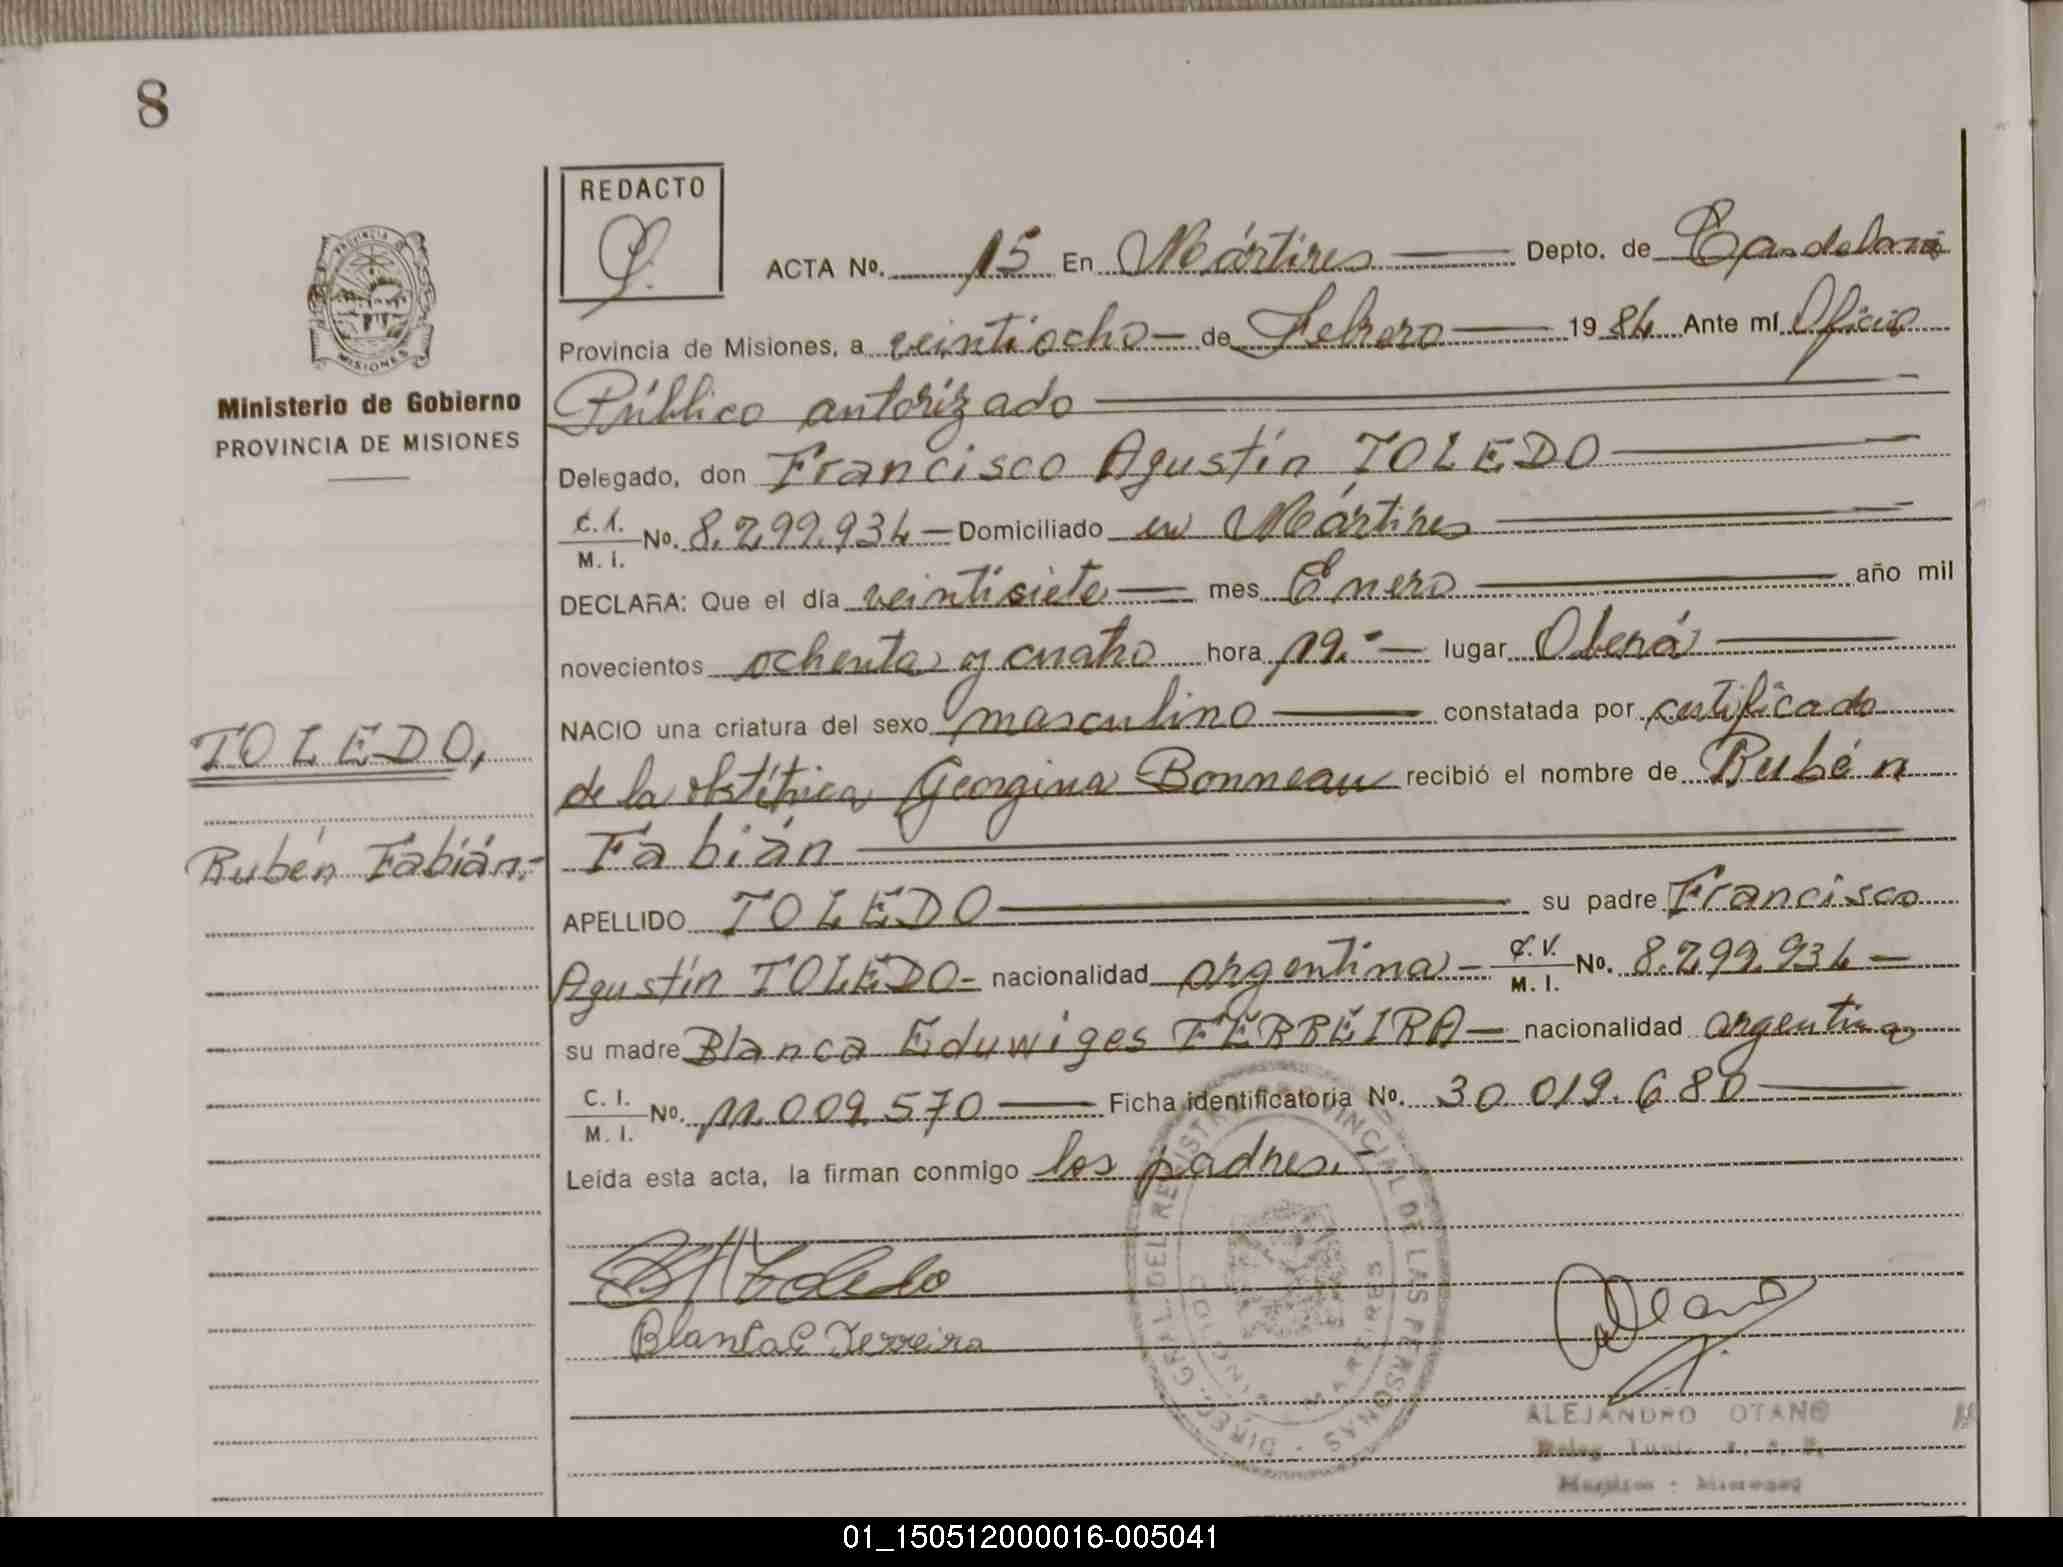 8
REDACTO
ACTA No. 15 En Mártires Depto. de Candelaria
Provincia de Misiones, a veintiocho de Febrero 1984 Ante mí Oficio
Público autorizado
Ministerio de Gobierno
PROVINCIA DE MISIONES
Delegado, don Francisco Agustín TOLEDO
C. I. M. I. No. 8.299.934 Domiciliado en Mártires
DECLARA: Que el día veintisiete mes Enero año mil
novecientos ochenta y cuatro hora 19.- lugar Oberá
NACIO una criatura del sexo masculino constatada por certificado
de la obstétrica Georgina Bonneau recibió el nombre de Rubén
Fabián
TOLEDO,
Rubén Fabián.-
APELLIDO TOLEDO su padre Francisco
Agustín TOLEDO- nacionalidad argentina - C. V. M. I. No. 8.299.934 -
su madre Blanca Eduwiges FERREIRA - nacionalidad argentina
C. I. M. I. No. 11.009.570 Ficha identificatoria No. 30.019.680
Leída esta acta, la firman conmigo los padres.
Toledo
Blanca E Ferreira
DIREC. GRAL. DEL REGISTRO PROVINCIAL DE LAS PERSONAS
MARTIRES
ALEJANDRO OTANO
Misiones
01_150512000016-005041